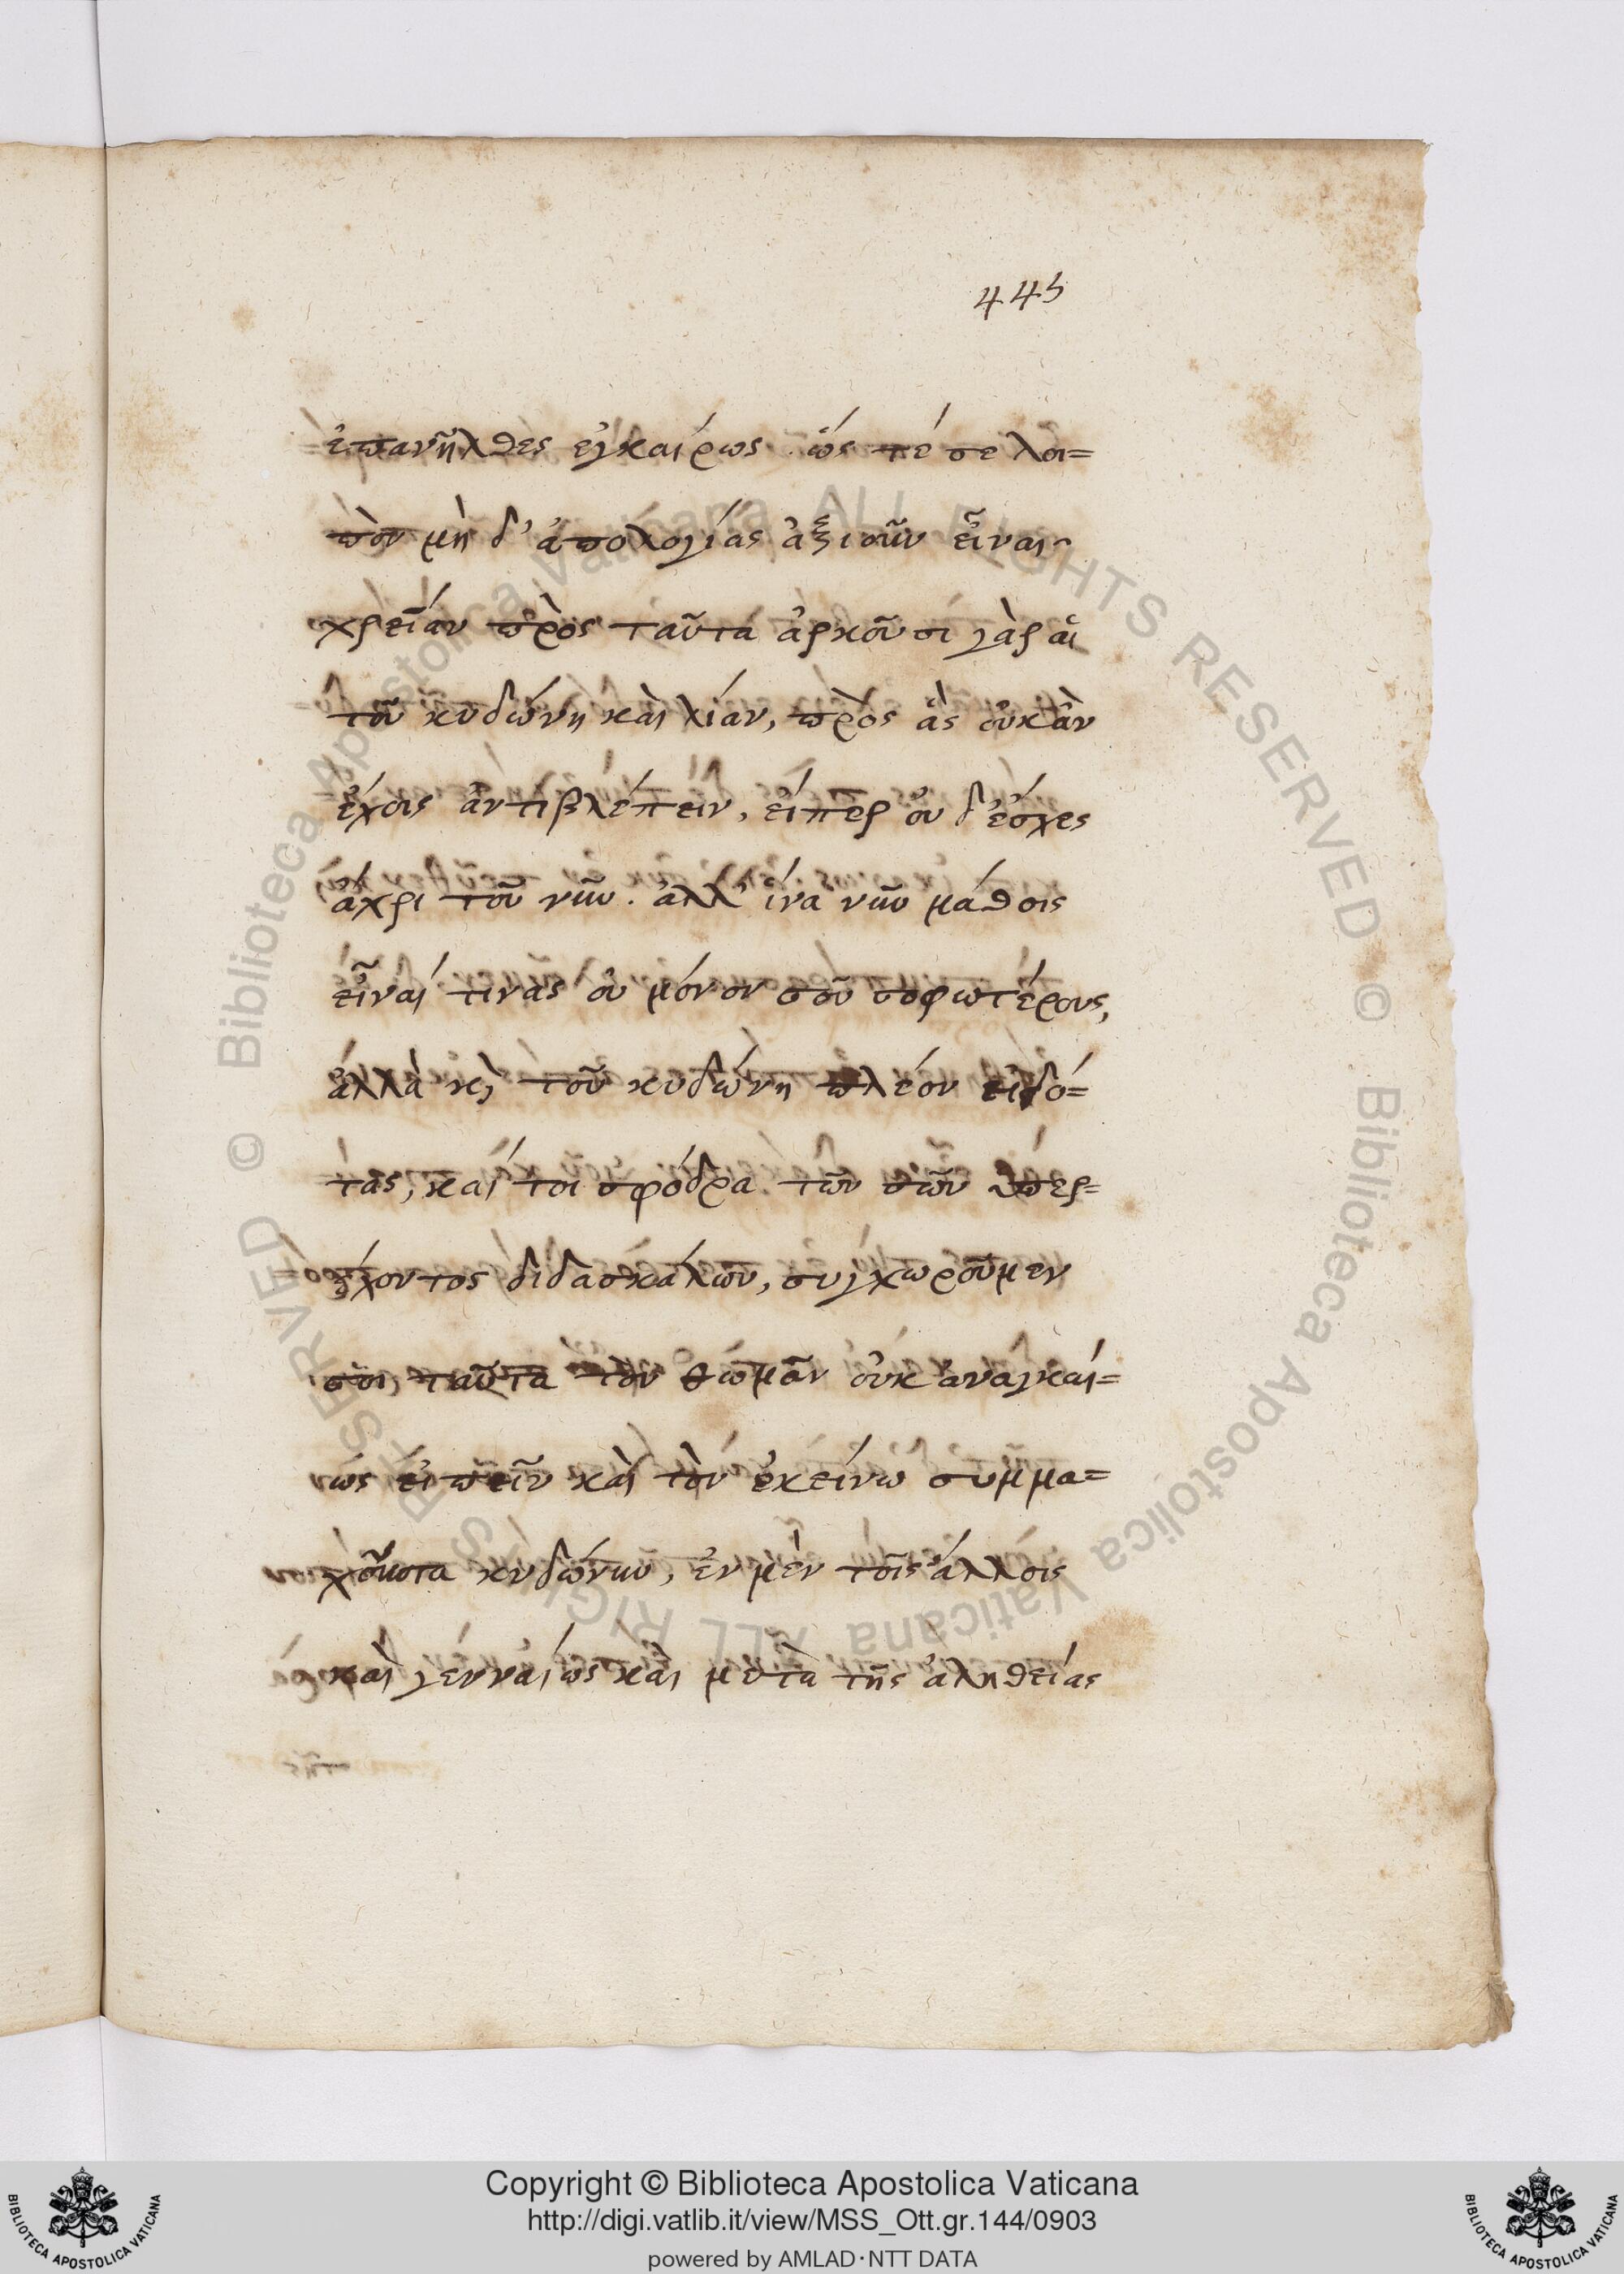 445
ἐπανῆλθες εὐκαίρως ὥς τέ σε λοι=
πὸν μὴ δ' ἀπολογίας ἀξιοῦν εἶναι
χρείαν πρὸς ταῦτα ἀρκοῦσι γὰρ αἱ
τοῦ κυδώνη καὶ λίαν, πρὸς ἃς οὐκ ἂν
ἔχοις ἀντιβλέπειν, εἴπερ οὐ δ' ἔσχες
ἄχρι τοῦ νῦν. ἀλλ' ἵνα νῦν μάθοις
εἶναί τινας οὐ μόνον σοῦ σοφωτέρους,
ἀλλὰ κὶ τοῦ κυδώνη πλέον εἰδό=
τας, καί τοι σφόδρα τῶν σῶν ὑπερ=
έχοντος διδασκάλων, συγχωροῦμεν
σοι ταῦτα τὸν θωμᾶν οὐκ ἀναγκαί=
ως εἰπεῖν καὶ τὸν ἐκείνω συμμα=
χοῦντα κυδώνην, ἐν μὲν τοῖς ἄλλοις
καὶ γενναίως καὶ μετὰ τῆς ἀληθείας
Copyright © Biblioteca Apostolica Vaticana
http://digi.vatlib.it/view/MSS_Ott.gr.144/0903
powered by AMLAD·NTT DATA
BIBLIOTECA APOSTOLICA VATICANA
BIBLIOTECA APOSTOLICA VATICANA
© Biblioteca Apostolica Vaticana ALL RIGHTS RESERVED
© Biblioteca Apostolica Vaticana ALL RIGHTS RESERVED